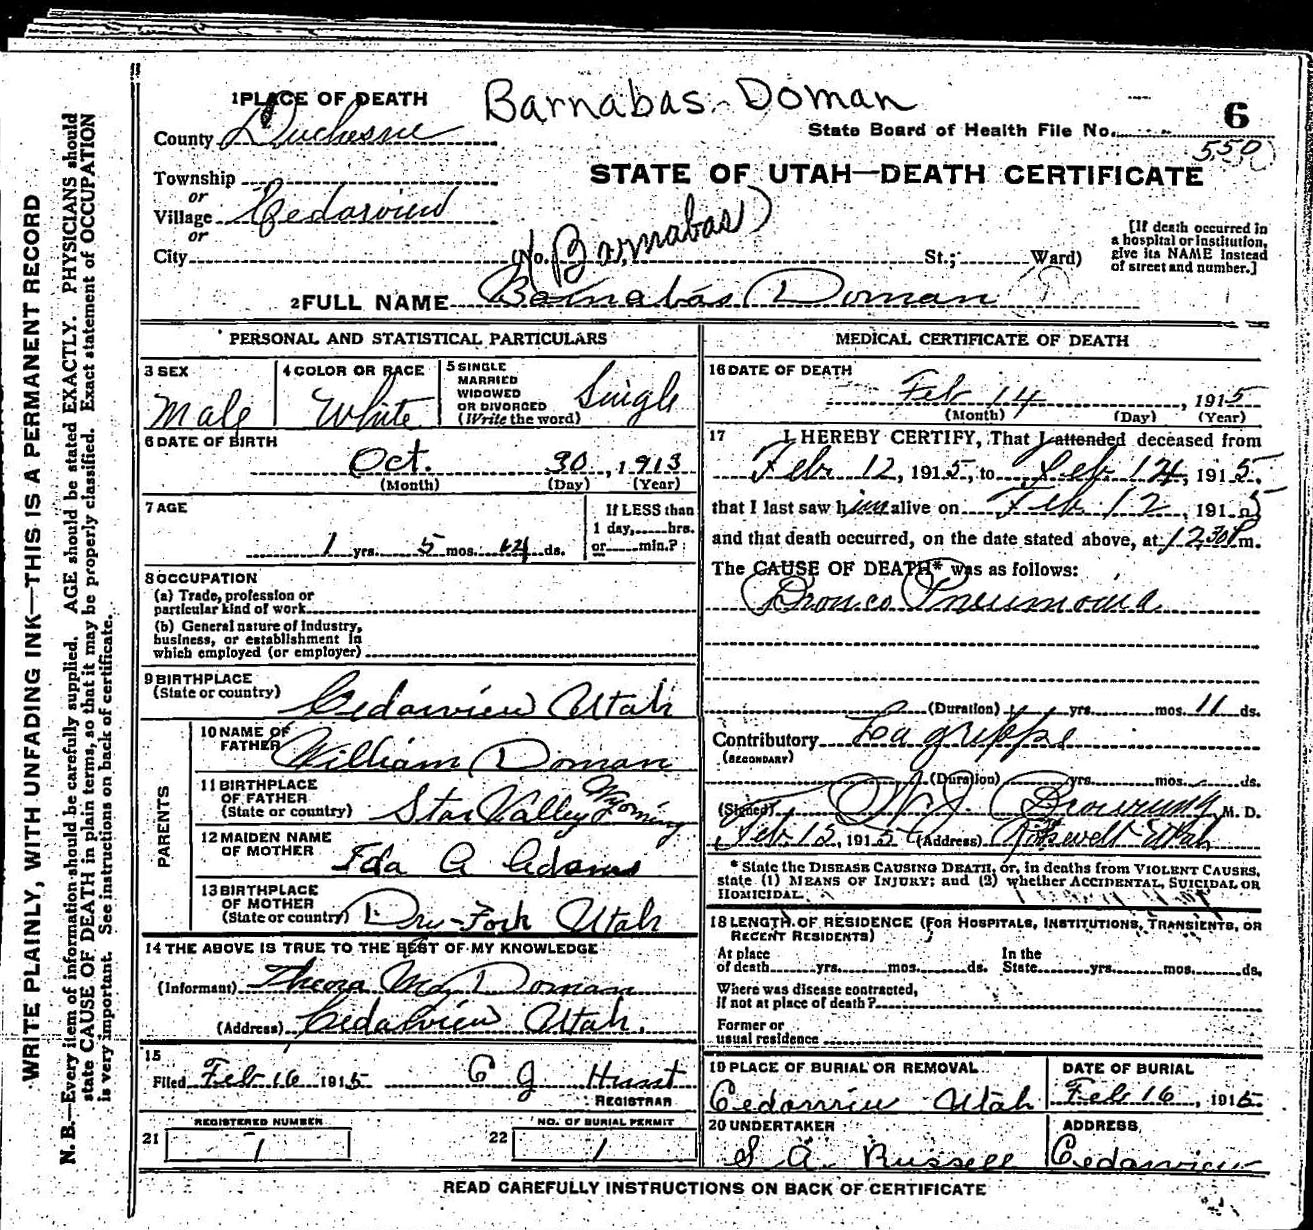 Barnabas Doman
1 PLACE OF DEATH
County Duchesne
State Board of Health File No. 6
550
STATE OF UTAH—DEATH CERTIFICATE
Township
or
Village Cedarview
or
City (No. St.; Ward)
Barnabas
[If death occurred in
a hospital or institution,
give its NAME instead
of street and number.]
2 FULL NAME Barnabas Doman
PERSONAL AND STATISTICAL PARTICULARS
3 SEX
Male
4 COLOR OR RACE
White
5 SINGLE
MARRIED
WIDOWED
OR DIVORCED
(Write the word)
Single
6 DATE OF BIRTH
Oct. 30, 1913
(Month) (Day) (Year)
7 AGE
1 yrs. 5 mos. ds.
If LESS than
1 day, hrs.
or min.?
8 OCCUPATION
(a) Trade, profession or
particular kind of work
(b) General nature of industry,
business, or establishment in
which employed (or employer)
9 BIRTHPLACE
(State or country)
Cedarview Utah
PARENTS
10 NAME OF
FATHER
William Doman
11 BIRTHPLACE
OF FATHER
(State or country)
Star Valley Wyoming
12 MAIDEN NAME
OF MOTHER
Ida A Adams
13 BIRTHPLACE
OF MOTHER
(State or country)
Dry-Fork Utah
14 THE ABOVE IS TRUE TO THE BEST OF MY KNOWLEDGE
(Informant) Doman
(Address) Cedarview Utah.
15
Filed Feb 16 1915 C J
REGISTRAR
21
REGISTERED NUMBER
1
22
NO. OF BURIAL PERMIT
1
MEDICAL CERTIFICATE OF DEATH
16 DATE OF DEATH
Feb 14, 1915
(Month) (Day) (Year)
17 I HEREBY CERTIFY, That I attended deceased from
Feb 12, 1915, to Feb 14, 1915,
that I last saw him alive on Feb 12, 1915
and that death occurred, on the date stated above, at 12.30 P m.
The CAUSE OF DEATH* was as follows:
Bronco Pneumonia
(Duration) yrs. mos. 11 ds.
Contributory Lagrippe
(SECONDARY)
(Duration) yrs. mos. ds.
(Signed) J. Browning M. D.
Feb 15, 1915 (Address) Utah
* State the DISEASE CAUSING DEATH, or, in deaths from VIOLENT CAUSES,
state (1) MEANS OF INJURY; and (2) whether ACCIDENTAL, SUICIDAL OR
HOMICIDAL.
18 LENGTH OF RESIDENCE (FOR HOSPITALS, INSTITUTIONS, TRANSIENTS, OR
RECENT RESIDENTS)
At place
of death yrs. mos. ds.
In the
State yrs. mos. ds.
Where was disease contracted,
if not at place of death?
Former or
usual residence
19 PLACE OF BURIAL OR REMOVAL
Cedarview Utah
DATE OF BURIAL
Feb 16, 1915
20 UNDERTAKER
S A Russell
ADDRESS
Cedarview
READ CAREFULLY INSTRUCTIONS ON BACK OF CERTIFICATE
WRITE PLAINLY, WITH UNFADING INK—THIS IS A PERMANENT RECORD
N. B.—Every item of information should be carefully supplied. AGE should be stated EXACTLY. PHYSICIANS should
state CAUSE OF DEATH in plain terms, so that it may be properly classified. Exact statement of OCCUPATION
is very important. See instructions on back of certificate.